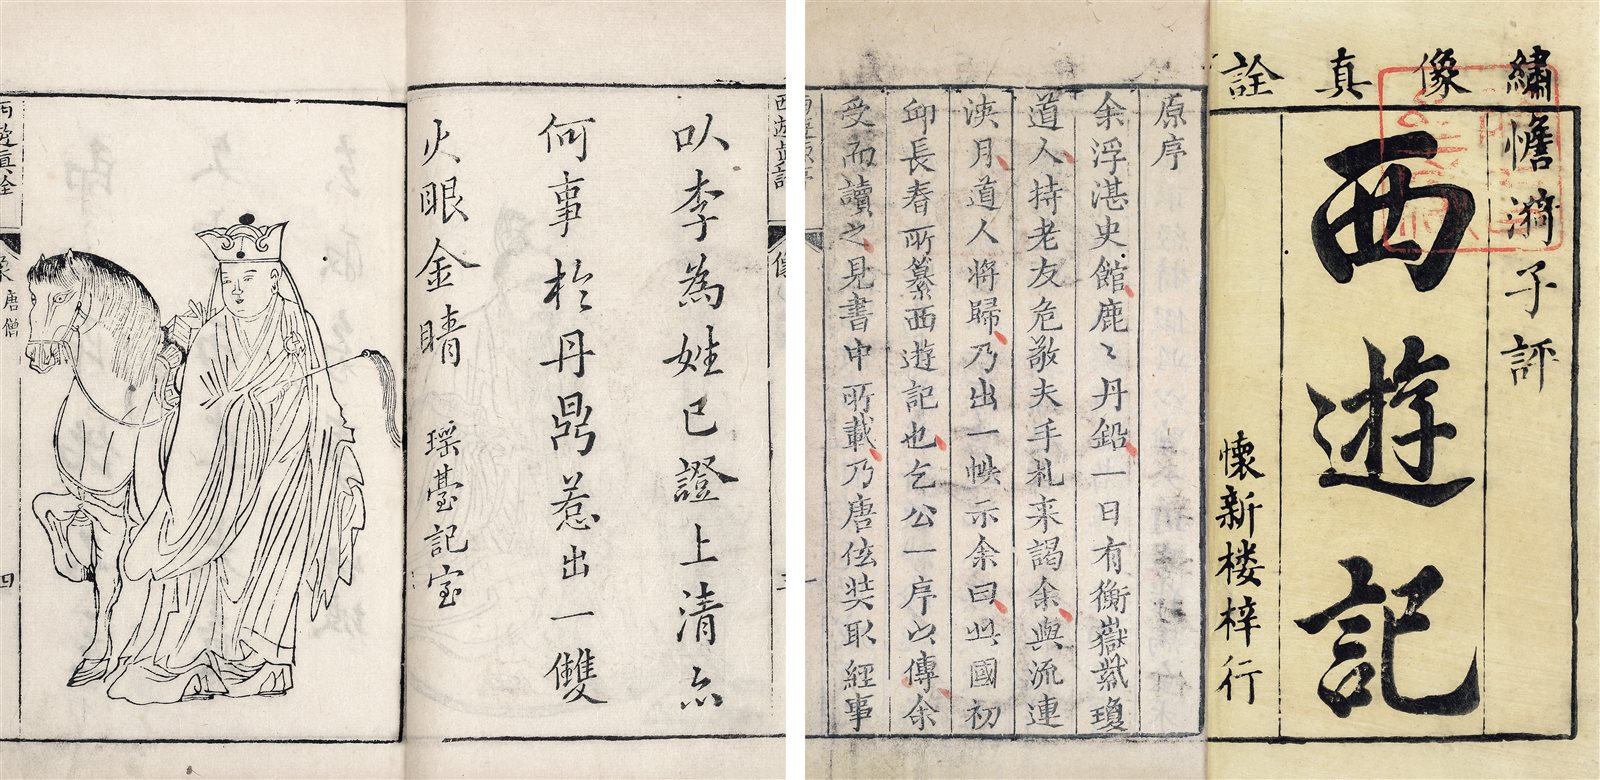 繡像真詮
憺漪子評
西遊記
懷新楼梓行
原序
余浮湛史館鹿〻丹鉛一日有衡嶽紫瓊
道人持老友危敬夫手札来謁余與流連
浹月道人将歸乃出一帙示余曰此國初
邱長春所纂西遊記也乞公一序以傳余
受而讀之見書中所載乃唐玄奘取經事
以李為姓已證上清亦
何事於丹鼎惹出一雙
火眼金睛
瑶臺記室
西遊真詮
像
唐僧
四